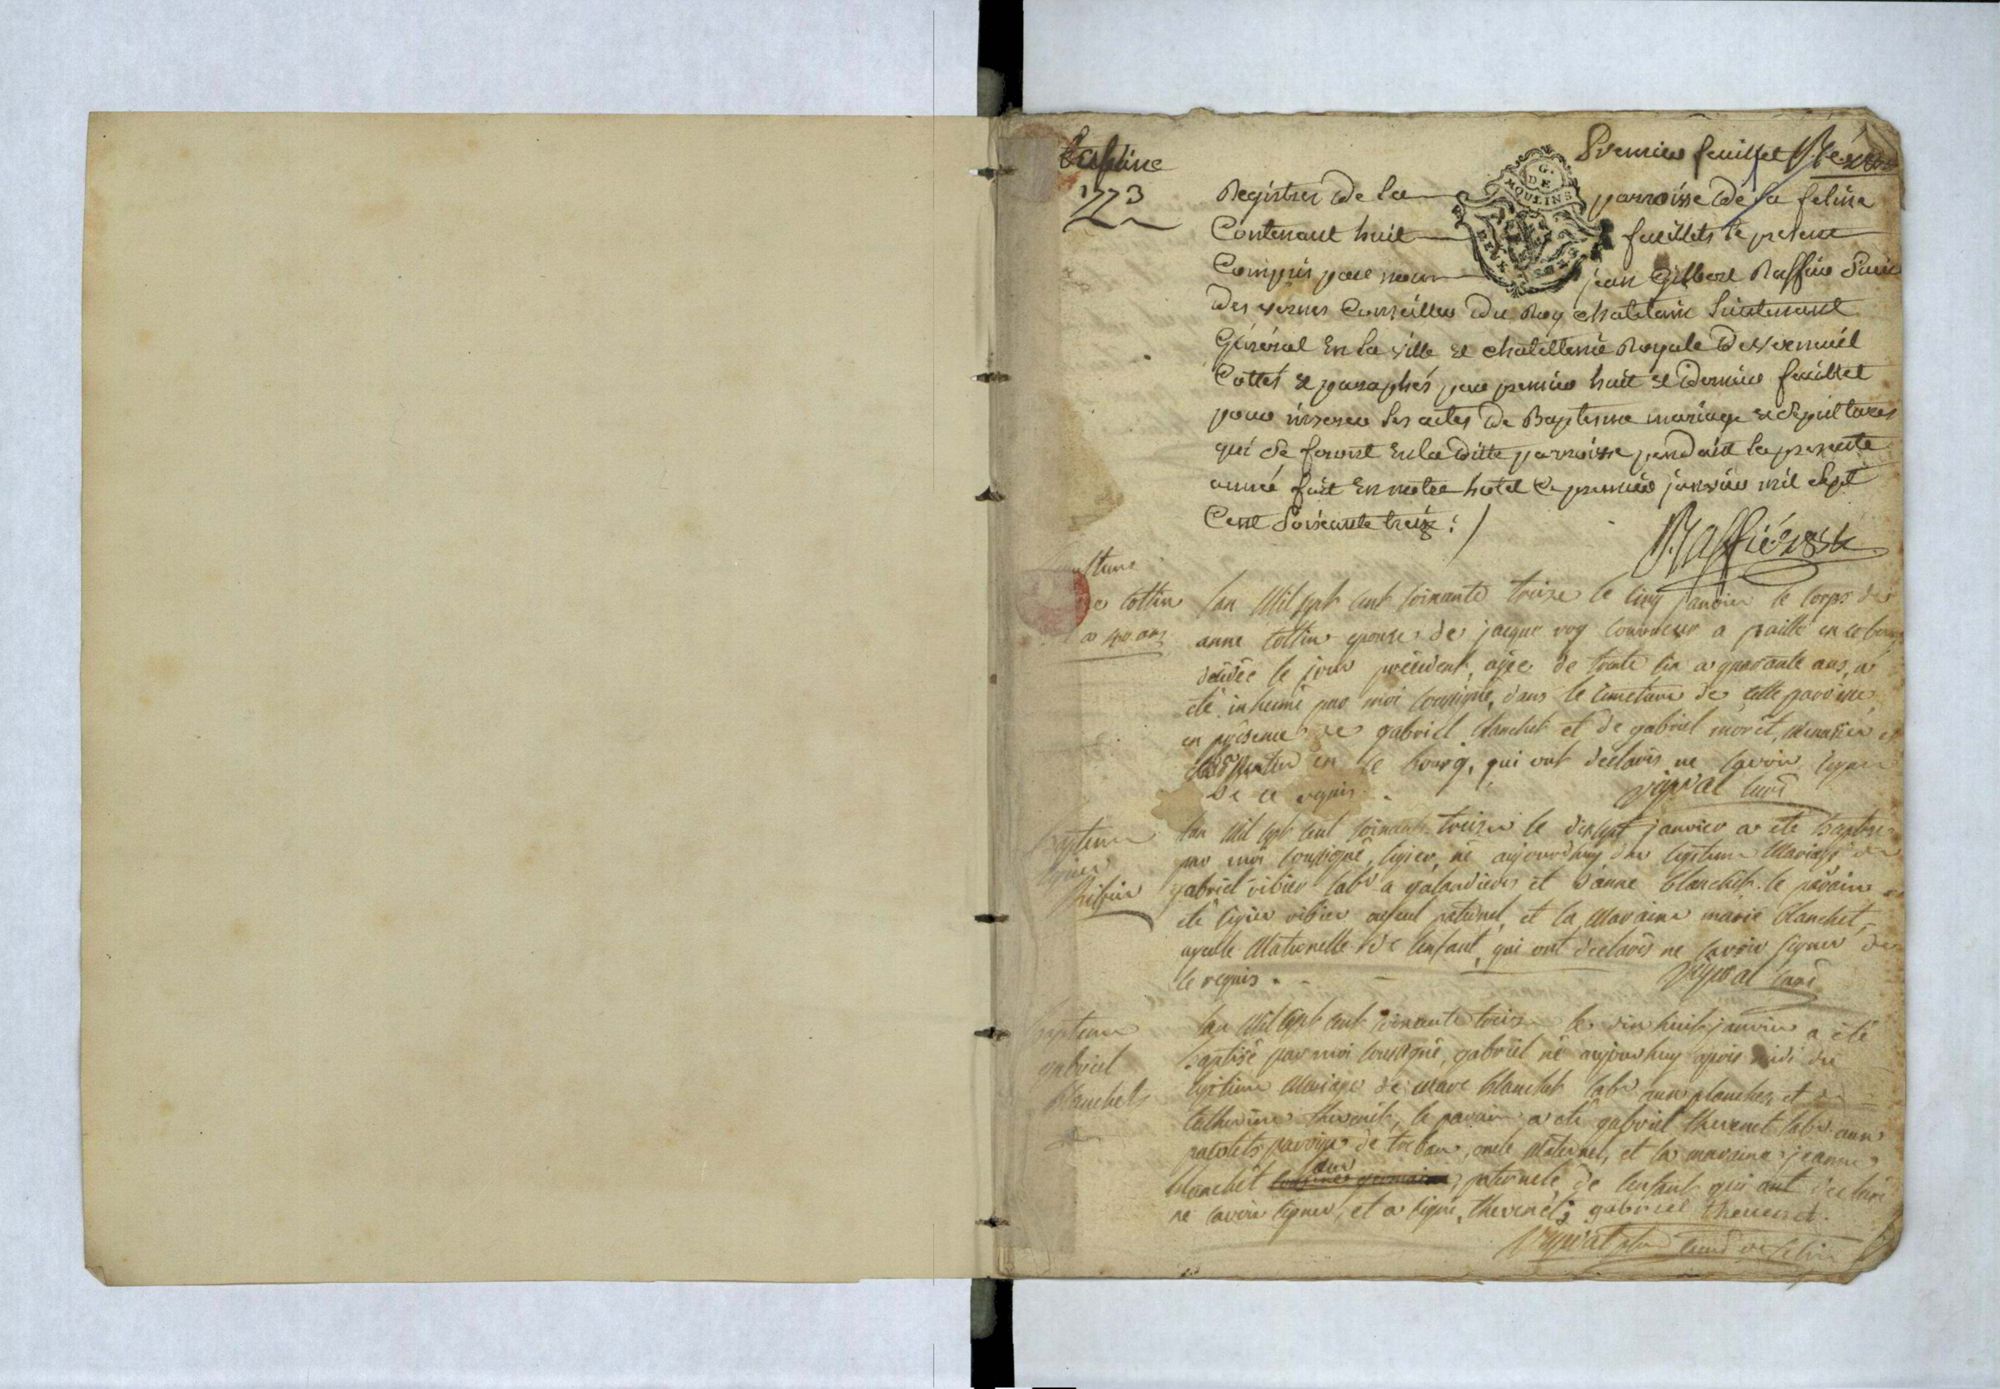 La feline
1773
Premier feuillet
G. DE MOULINS
Registres de la parroisse de la feline
Contenant huit feuillets le present
Compris par nous jean Gilbert Raffier Sieur
Des vernes Conseiller Du Roy chatelain Lieutenant
Général En la ville et chatellenie Royale De verneuil
Cottés et paraphés par premier huit et Dernier feuillet
pour inserer les actes De Baptesme mariage et sepultures
qui se feront En la ditte parroisse pendant la presente
année fait En notre hotel ce premier janvier mil Sept
Cent Soixante treize ./
cottin
a 40 ans
lan Mil sept cent soixante treize le cinq janvier le corps de
anne cottin epouse de jacque roy couvreur a paille en ce bourg
décédée le jour précédent, agée de trente six a quarante ans, a
été inhumé par moi soussigné, dans le cimetiere de cette paroisse
en présence de gabriel blanchet et de gabriel moret,
en ce bourg, qui ont declarés ne savoir signer
de ce requis.
curé
bapteme
ligier
vibier
lan Mil sept cent soixante treize le dixsept janvier a été baptisé
par moi soussigné, ligier, né aujourdhuy du legitime Mariage de
gabriel vibier labr a et danne blanchet. le parain a
été ligier vibier ayeul paternel, et la Maraine marie blanchet,
ayeulle Maternelle de lenfant, qui ont declarés ne savoir signer de
ce requis.
curé
bapteme
gabriel
blanchet
lan Mil sept cent soixante treize le dix huit janvier a été
baptisé par moi soussigné, gabriel né aujourdhuy apres midi du
legitime Mariage de marc blanchet labr aux planches et de
catherine thevenet, le parain a été gabriel thevenet labr aux
paroisse de treban, oncle Maternel, et la maraine jeanne
blanchet paternele de lenfant qui ont declaré
ne savoir signer, et a signé, thevenet; gabriel thevenet.
curé de feline